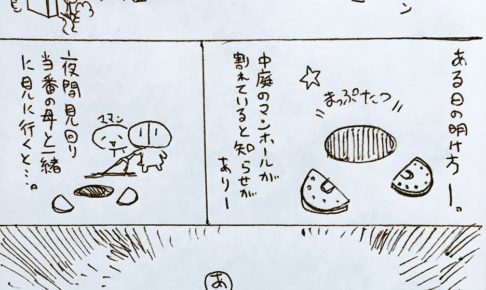 ン
ある日の明け方ー。
まっぷたつ
中庭のマンホールが
割れていると知らせが
ありー
ママン
夜間見回り
当番の母と一緒
に見に行くと…。
あ